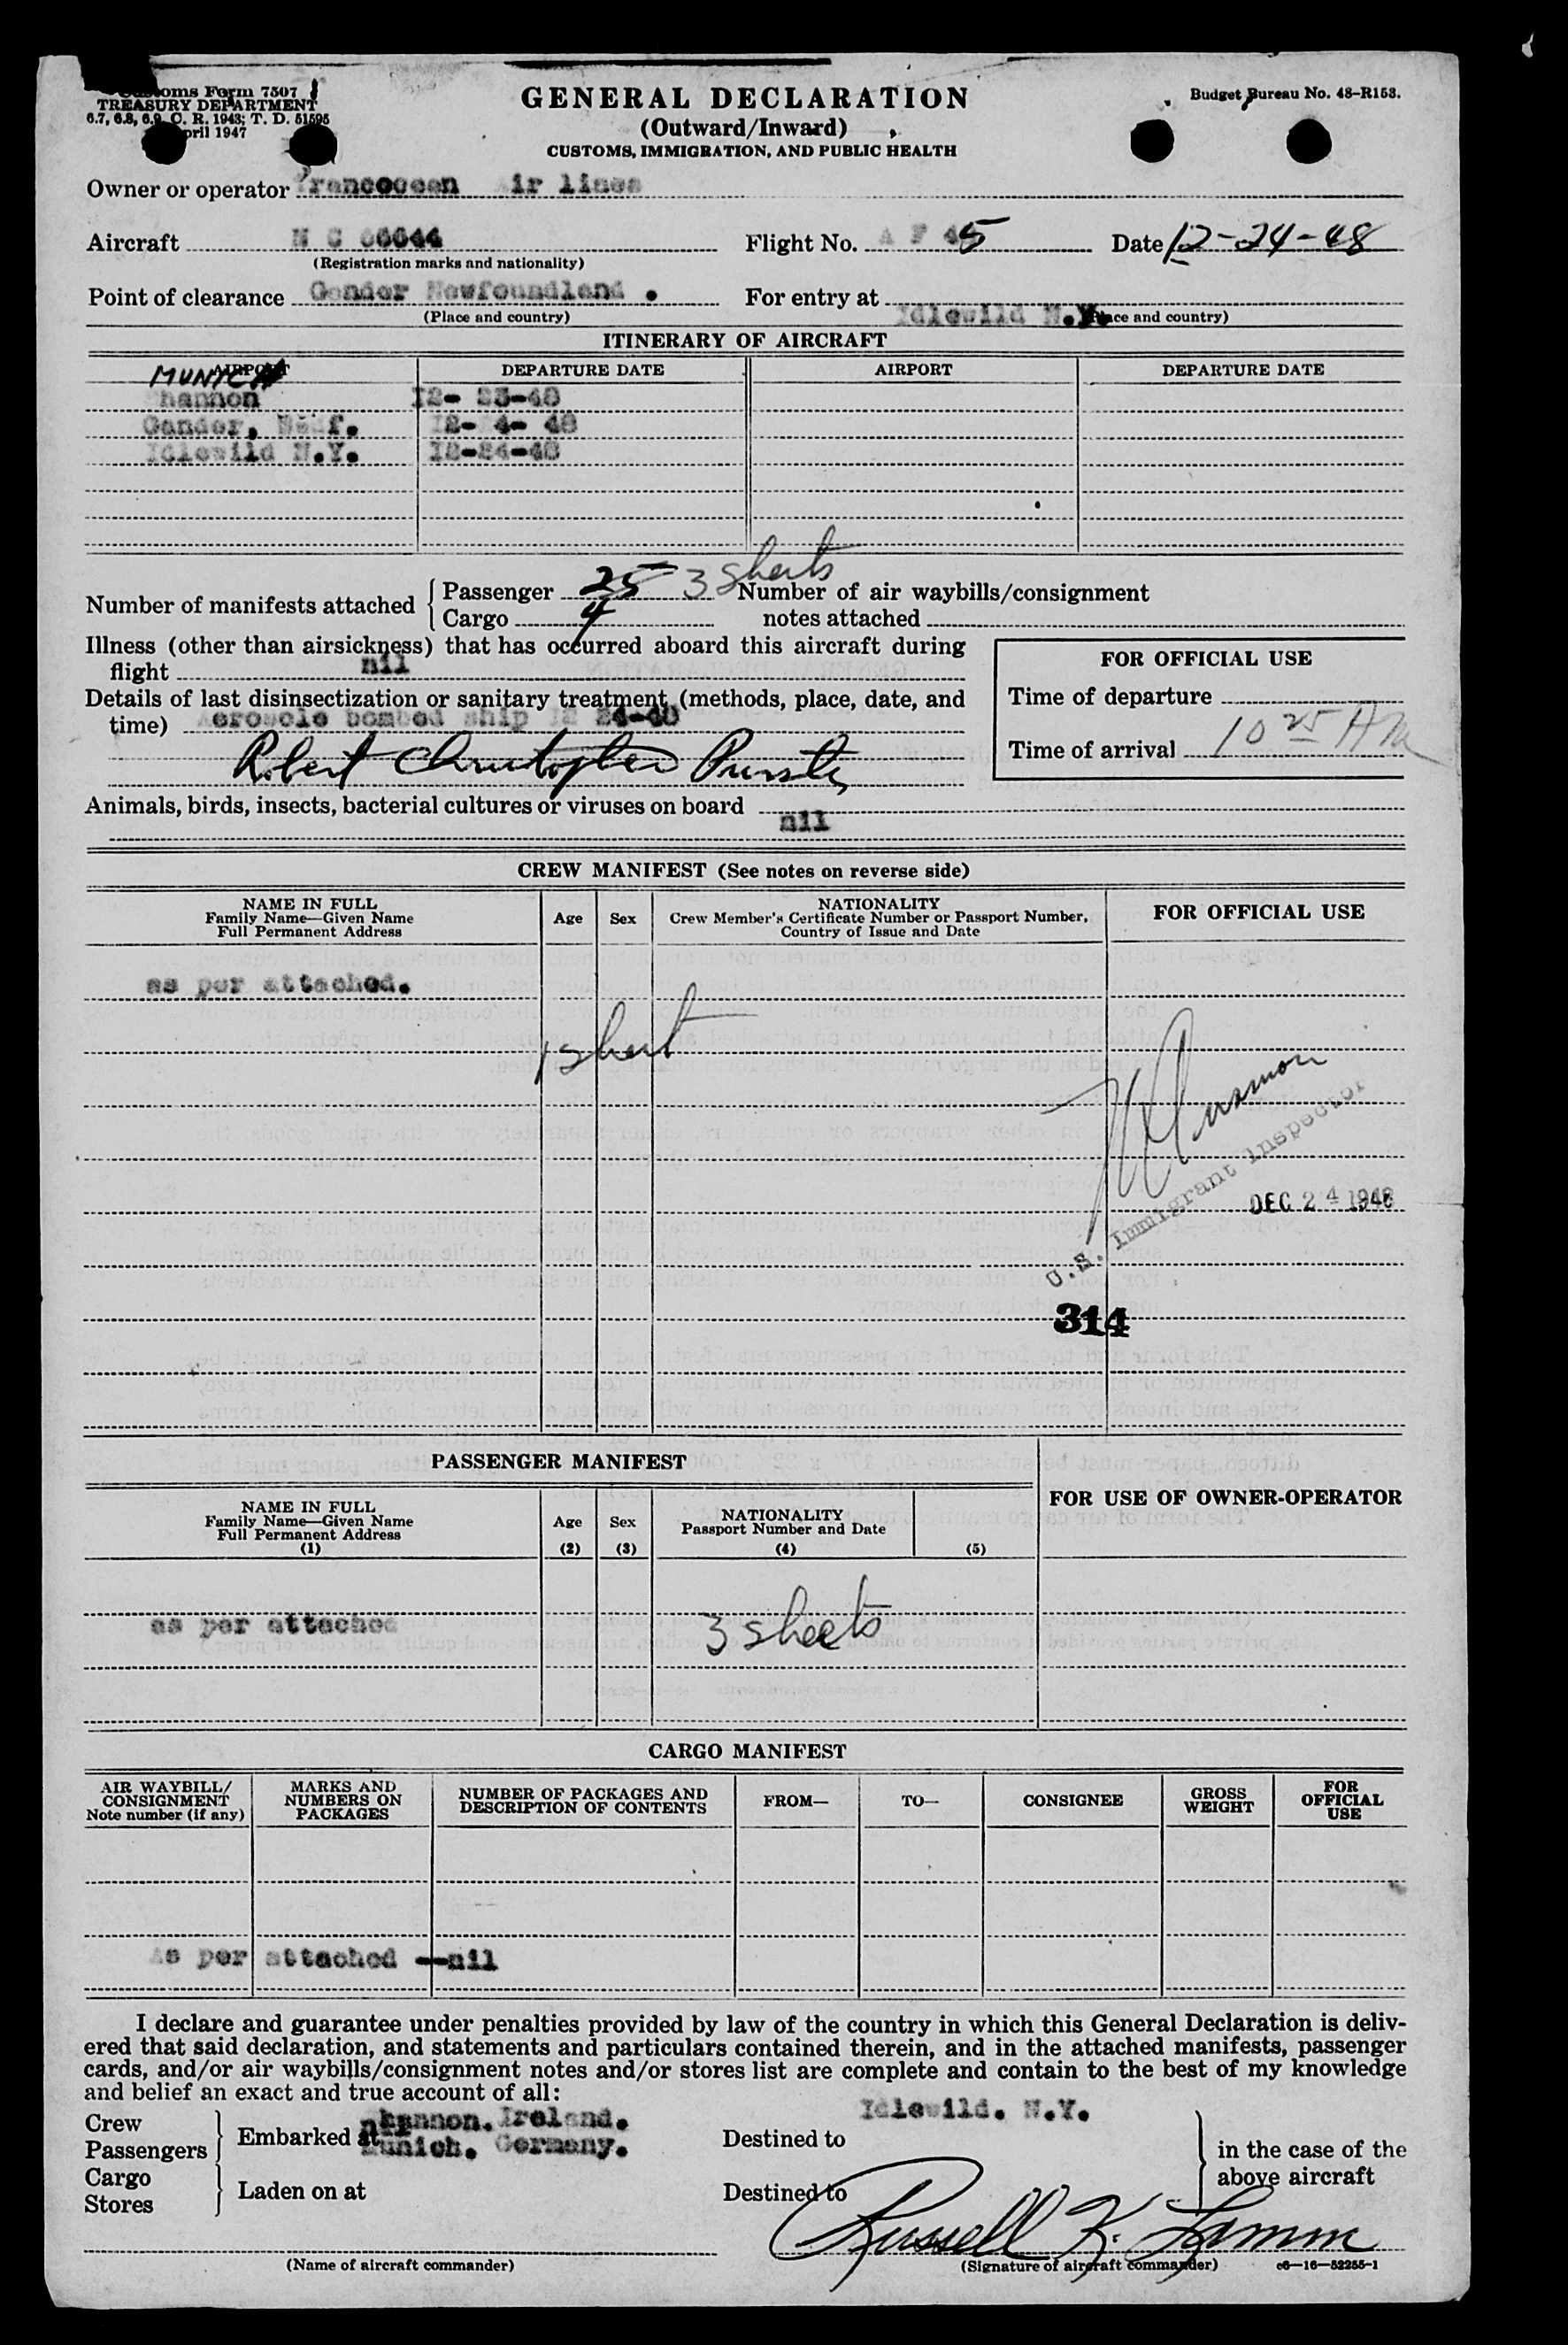 Customs Form 7507
TREASURY DEPARTMENT
6.7, 6.8, 6.9, C. R. 1943; T. D. 51595
April 1947
GENERAL DECLARATION
(Outward/Inward)
CUSTOMS, IMMIGRATION, AND PUBLIC HEALTH
Budget Bureau No. 48-R153.
Owner or operator Transocean Air lines
Aircraft N C 66644
(Registration marks and nationality)
Flight No. 5
Date 12-24-48
Point of clearance Gander Newfoundland .
(Place and country)
For entry at Idlewild N.Y.
(Place and country)
ITINERARY OF AIRCRAFT
AIRPORT DEPARTURE DATE AIRPORT DEPARTURE DATE
MUNICH
Shannon 12- 23-48
Gander, Newf. 12- 24- 48
Idlewild N.Y. 12-24-48
Number of manifests attached
Passenger 25 3 Sheets
Cargo 4
Number of air waybills/consignment
notes attached
Illness (other than airsickness) that has occurred aboard this aircraft during
flight nil
Details of last disinsectization or sanitary treatment (methods, place, date, and
time) Aerosole bombed ship 12 24-48
Robert Christopher
FOR OFFICIAL USE
Time of departure
Time of arrival 10 25 AM
Animals, birds, insects, bacterial cultures or viruses on board
nil
CREW MANIFEST (See notes on reverse side)
NAME IN FULL
Family Name—Given Name
Full Permanent Address
Age
Sex
NATIONALITY
Crew Member's Certificate Number or Passport Number,
Country of Issue and Date
FOR OFFICIAL USE
as per attached.
1 sheet
U.S. Immigrant Inspector
DEC 24 1948
314
PASSENGER MANIFEST
FOR USE OF OWNER-OPERATOR
NAME IN FULL
Family Name—Given Name
Full Permanent Address
(1)
Age
(2)
Sex
(3)
NATIONALITY
Passport Number and Date
(4)
(5)
as per attached
3 sheets
CARGO MANIFEST
AIR WAYBILL/
CONSIGNMENT
Note number (if any)
MARKS AND
NUMBERS ON
PACKAGES
NUMBER OF PACKAGES AND
DESCRIPTION OF CONTENTS
FROM—
TO—
CONSIGNEE
GROSS
WEIGHT
FOR
OFFICIAL
USE
As per attached --nil
I declare and guarantee under penalties provided by law of the country in which this General Declaration is deliv-
ered that said declaration, and statements and particulars contained therein, and in the attached manifests, passenger
cards, and/or air waybills/consignment notes and/or stores list are complete and contain to the best of my knowledge
and belief an exact and true account of all:
Crew
Passengers
Cargo
Stores
Embarked at
Shannon. Ireland.
Munich. Germany.
Laden on at
Idlewild. N.Y.
Destined to
Destined to
in the case of the
above aircraft
Russell K.
(Name of aircraft commander)
(Signature of aircraft commander)
c6—16—52255-1